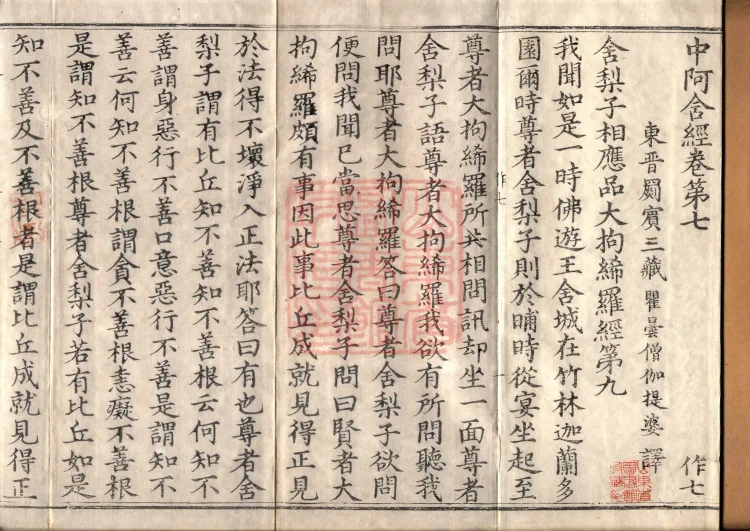 中阿含經卷第七
作七
東晉罽賓三藏瞿曇僧伽提婆譯
舍梨子相應品大拘絺羅經第九
我聞如是一時佛遊王舍城在竹林迦蘭多
園爾時尊者舍梨子則於晡時從宴坐起至
作七
尊者大拘絺羅所共相問訊却坐一面尊者
舍梨子語尊者大拘絺羅我欲有所問聽我
問耶尊者大拘絺羅答曰尊者舍梨子欲問
便問我聞已當思尊者舍梨子問曰賢者大
拘絺羅頗有事因此事比丘成就見得正見
於法得不壞淨入正法耶答曰有也尊者舍
梨子謂有比丘知不善知不善根云何知不
善謂身惡行不善口意惡行不善是謂知不
善云何知不善根謂貪不善根恚癡不善根
是謂知不善根尊者舍梨子若有比丘如是
知不善及不善根者是謂比丘成就見得正